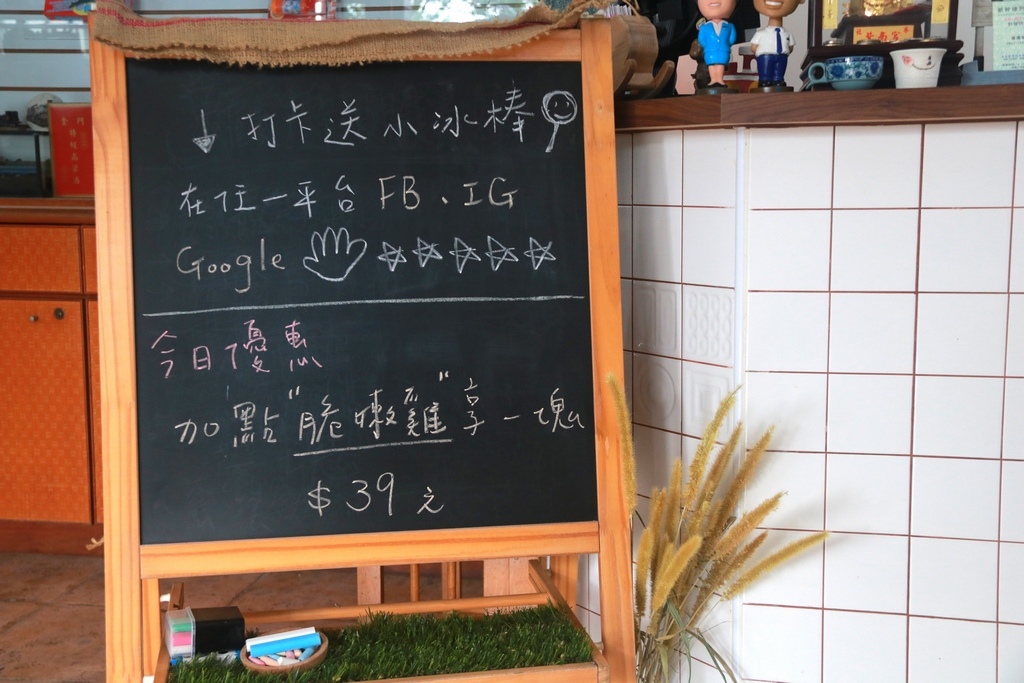 ↓ 打卡送小冰棒
在任一平台 FB、IG
Google ☆☆☆☆☆
今日優惠
加點"脆嫩雞"享一塊
$39元